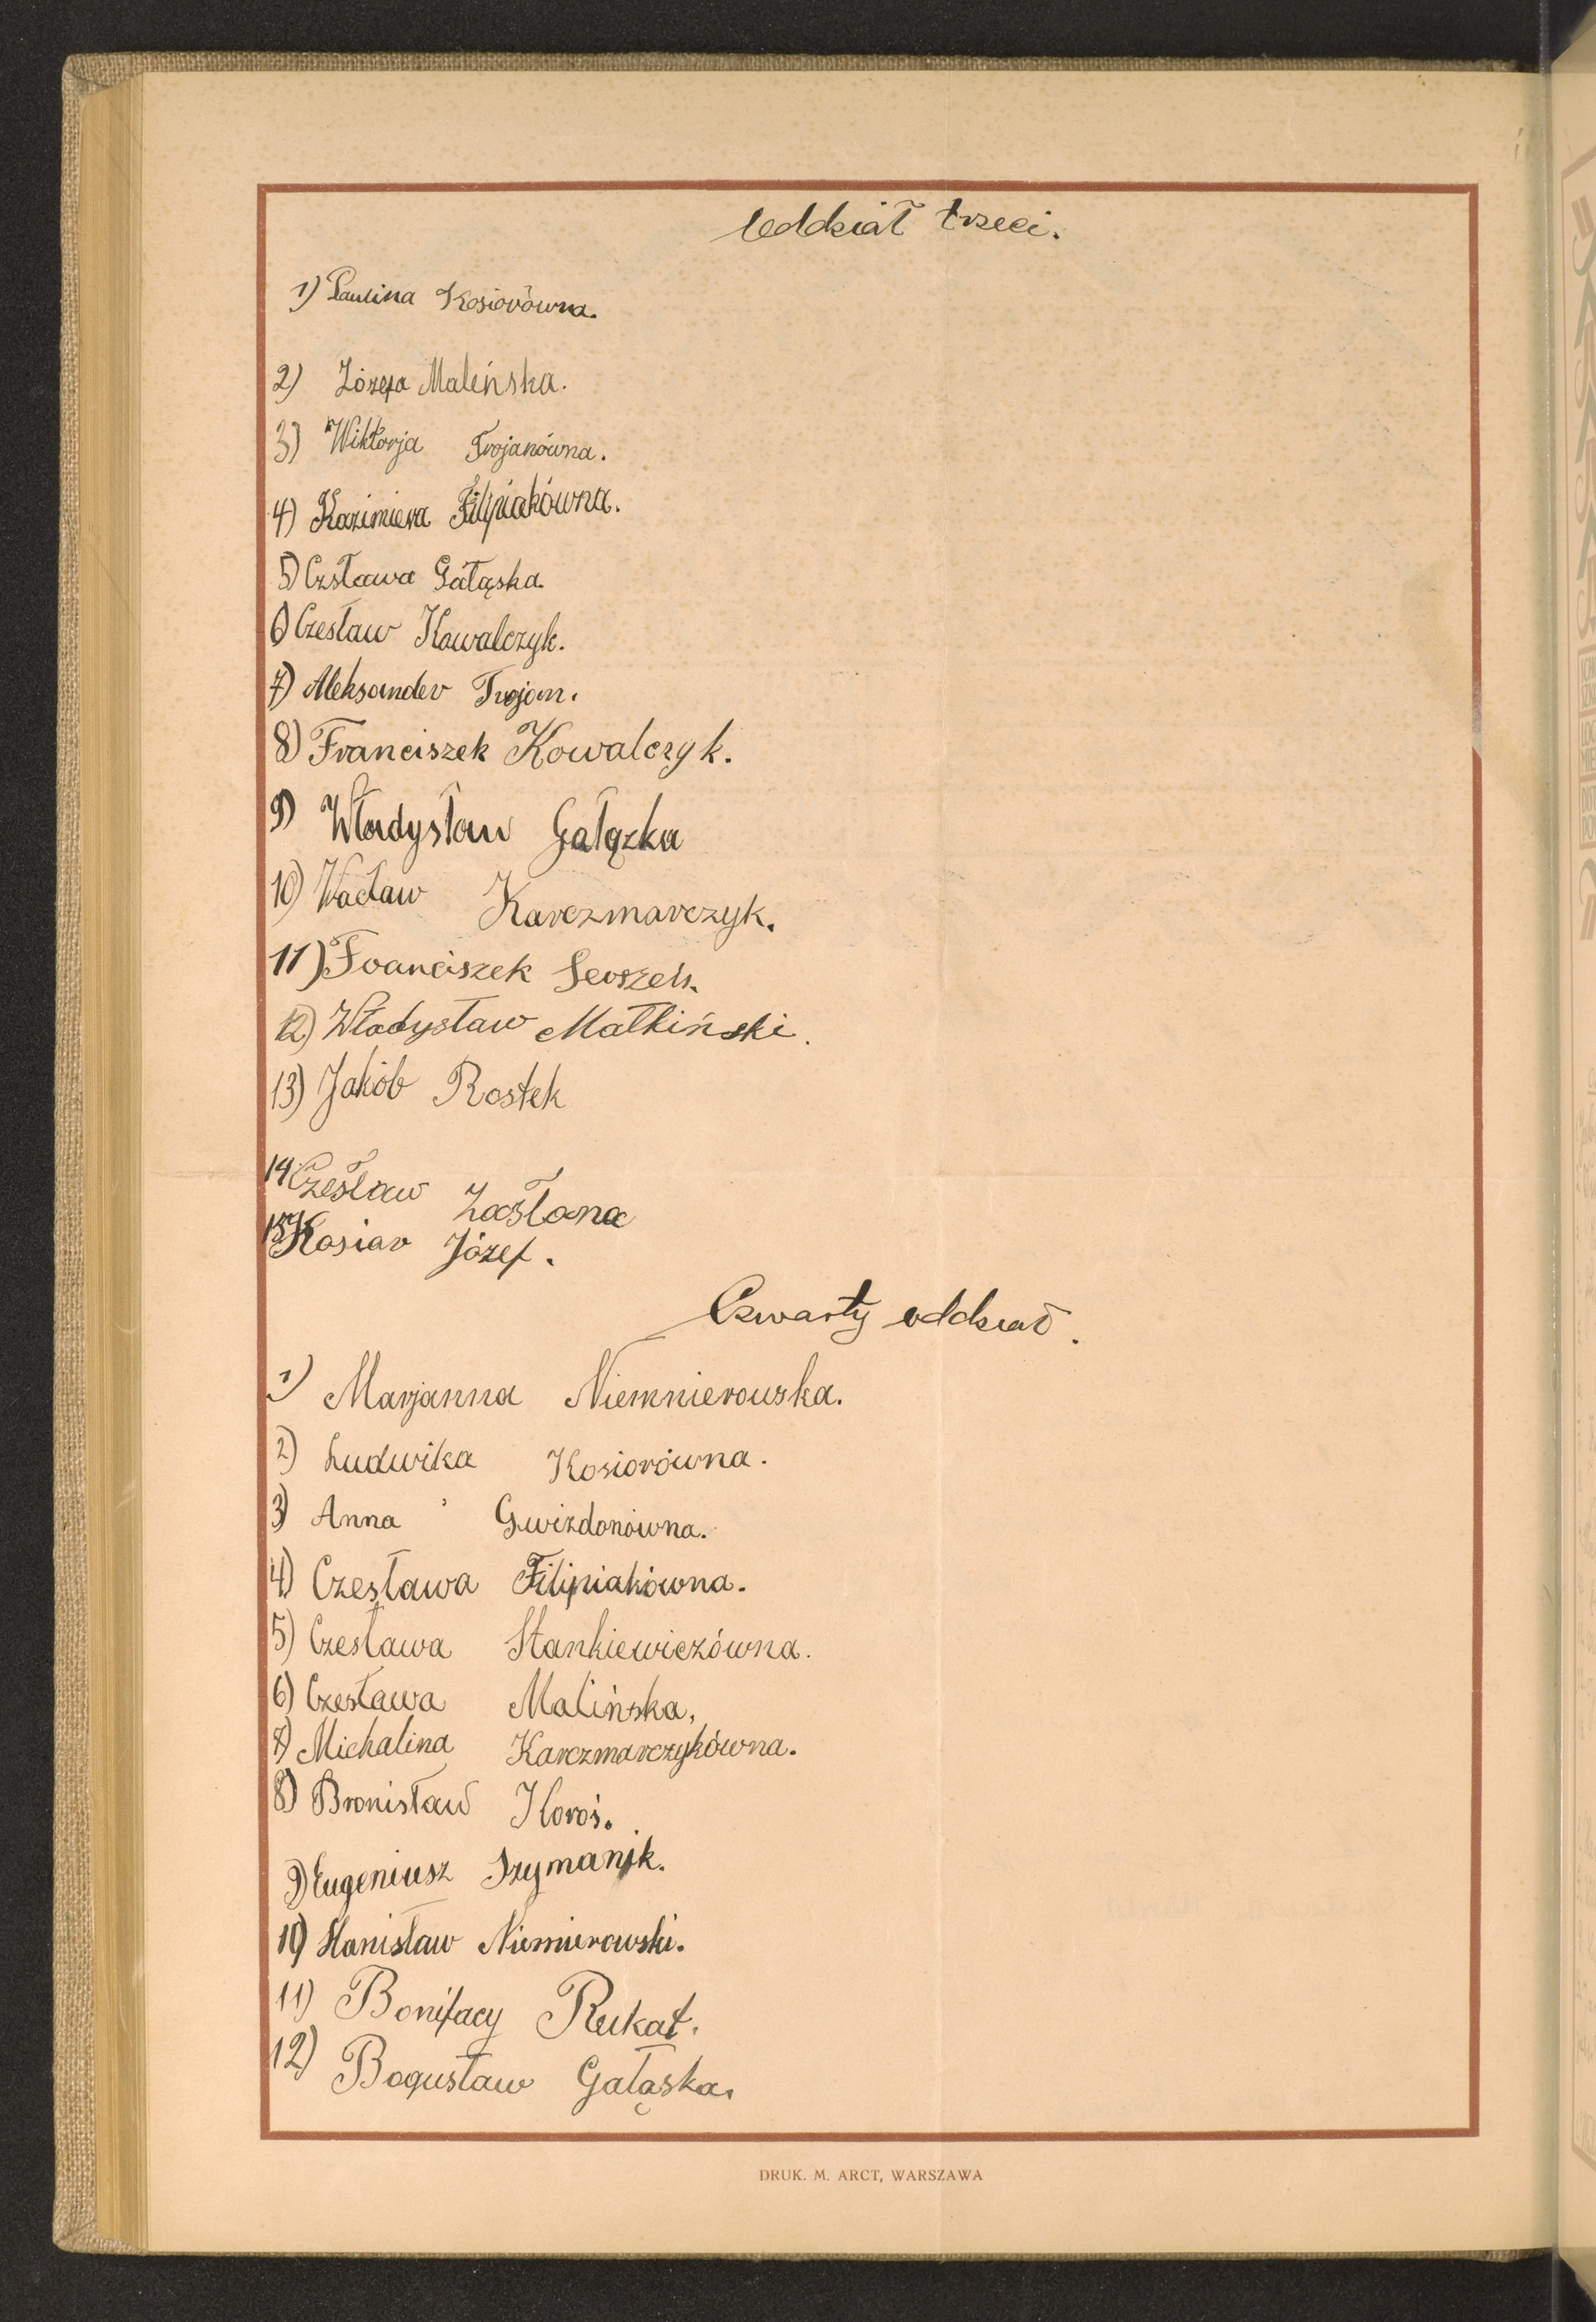 Oddział trzeci.
1) Paulina Kosiorówna.
2) Józefa Malińska.
3) Wiktorja Trojanówna.
4) Kazimiera Filipiakówna.
5) Czsława Gałąska.
6) Czesław Kowalczyk.
7) Aleksander Trojan.
8) Franciszek Kowalczyk.
9) Władysław Gałązka
10) Wacław Karczmarczyk.
11) Franciszek
12) Władysław Małkiński.
13) Jakób Rostek
14 Czesław Zasłona
15) Kosiar Józef.
Czwarty oddział.
1) Marjanna Niemnierowska.
2) Ludwika Kosiorówna.
3) Anna Gwizdonówna.
4) Czesława Filipiakówna.
5) Czesława Stankiewiczówna.
6) Czesława Malińska,
7) Michalina Karczmarczykówna.
8) Bronisław Horoś.
9) Eugeniusz Szymanik.
10) Stanisław Niemierowski.
11) Bonifacy Rukat.
12) Bogusław Gałąska.
DRUK. M. ARCT, WARSZAWA